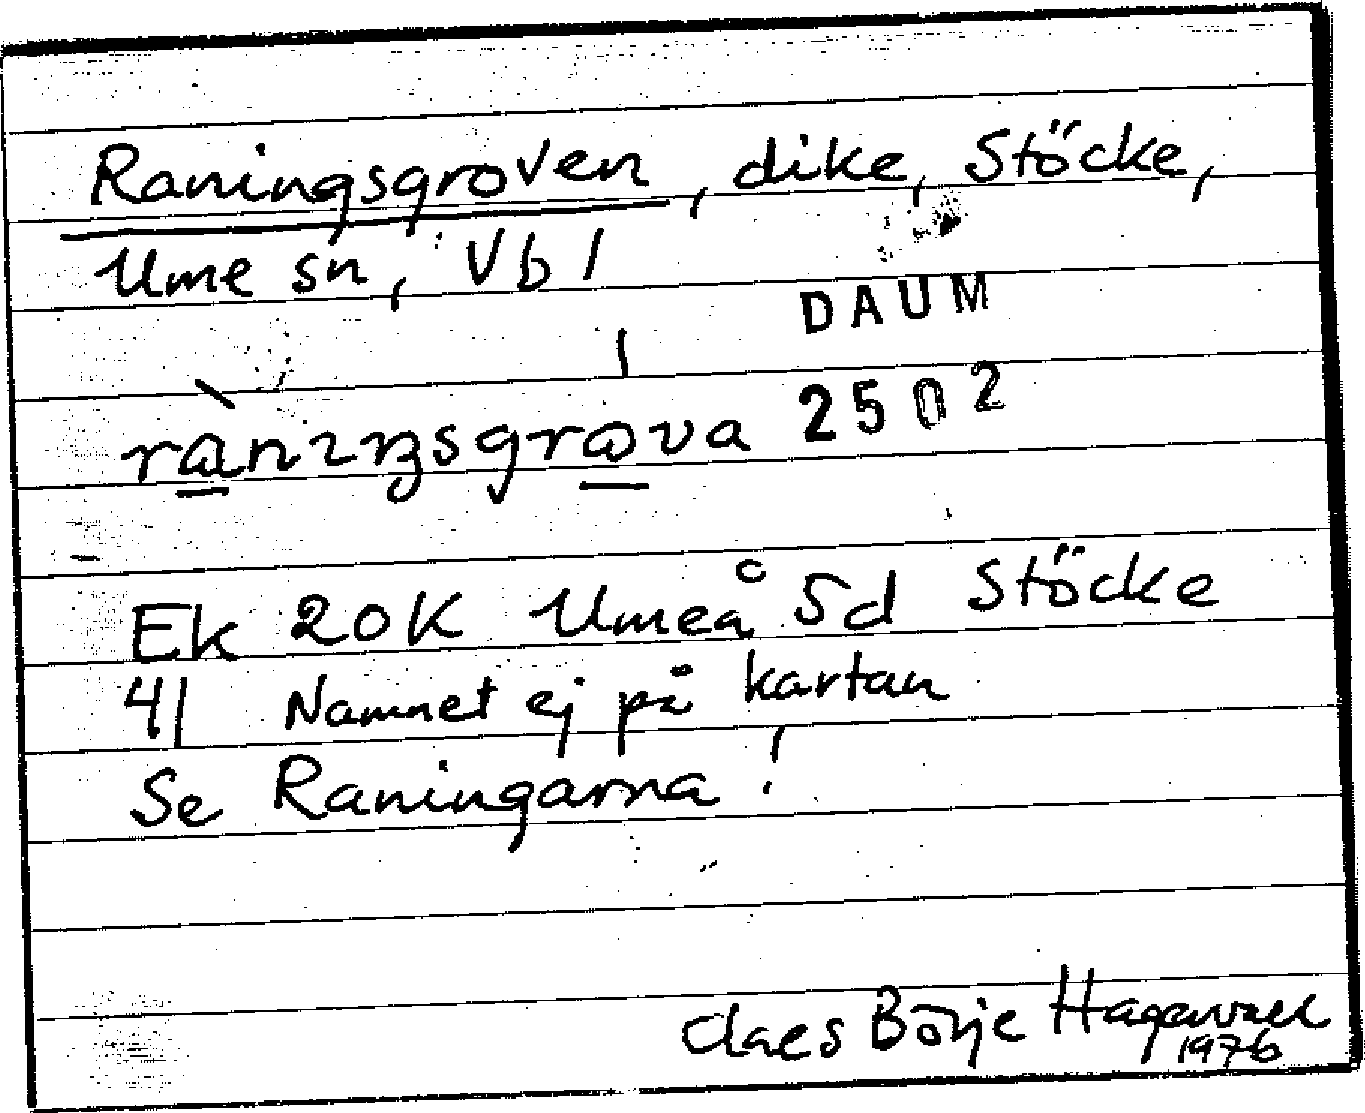 Raningsgroven, dike, Stöcke,
Ume sn, Vb l
DAUM
2502
Ek 20K Umeå 5d Stöcke
41 Namnet ej på kartan
Se Raningarna!
Claes Börje Hagervall
1976